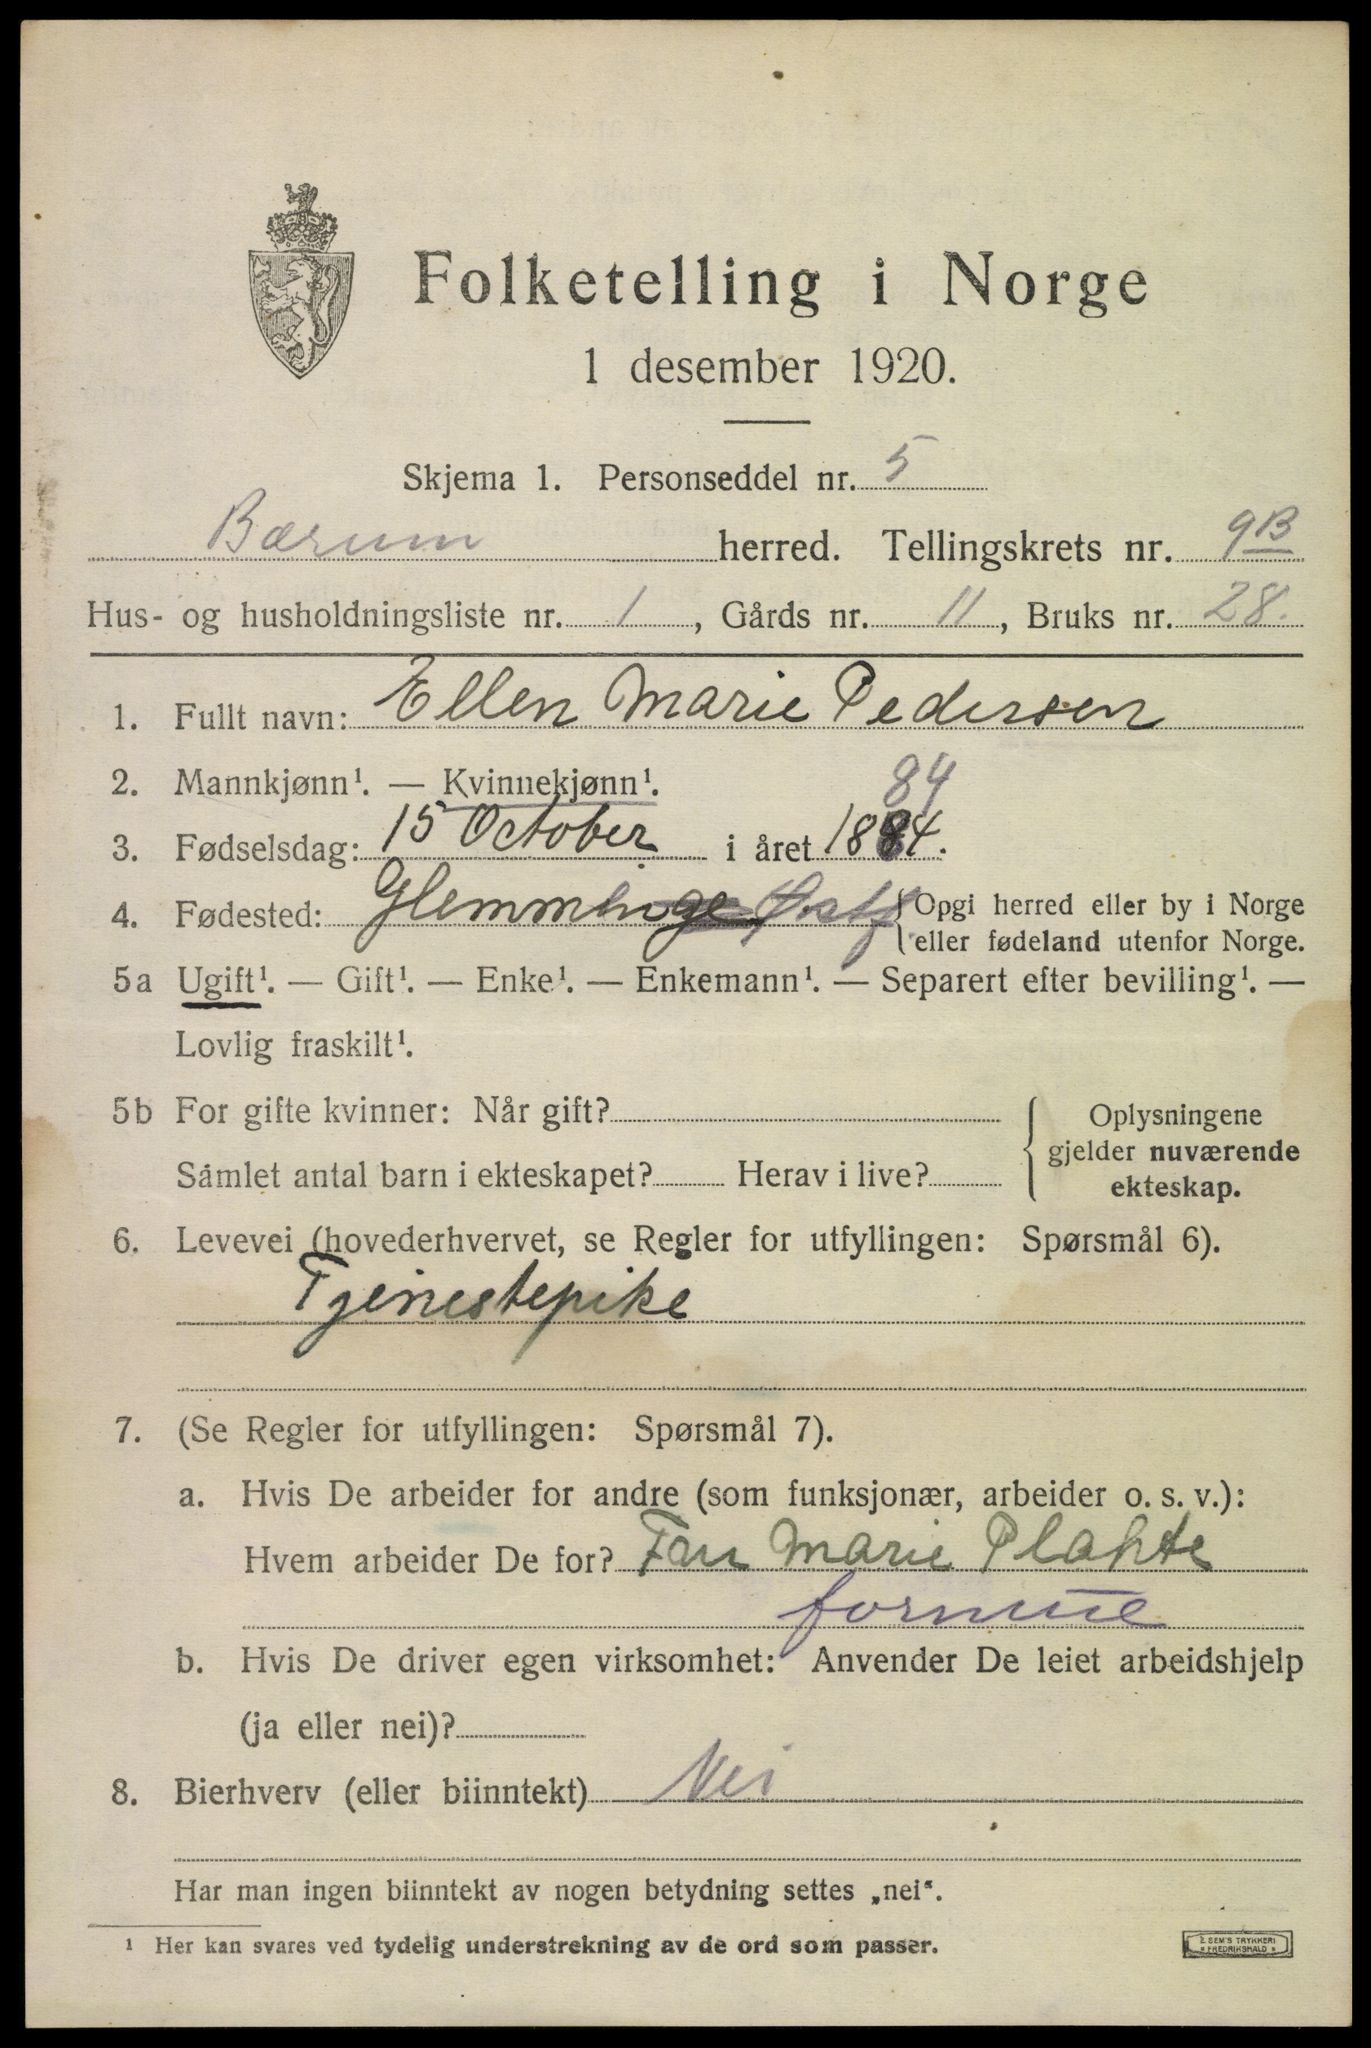 Folketelling i Norge
1 desember 1920.
Skjema 1. Personseddel nr. 5
Bærum herred. Tellingskrets nr. 9B
Hus- og husholdningsliste nr. 1, Gårds nr. 11, Bruks nr. 28.
1. Fullt navn: Ellen Marie Pedersen
2. Mannkjønn¹. — Kvinnekjønn¹. 84
3. Fødselsdag: 15 October i året 1884.
4. Fødested: Glemminge Østf Opgi herred eller by i Norge
eller fødeland utenfor Norge.
5a Ugift¹. — Gift¹. — Enke¹. — Enkemann¹. — Separert efter bevilling¹. —
Lovlig fraskilt¹.
5b For gifte kvinner: Når gift? Oplysningene
gjelder nuværende
Samlet antal barn i ekteskapet? Herav i live? ekteskap.
6. Levevei (hovederhvervet, se Regler for utfyllingen: Spørsmål 6).
Tjenestepike
7. (Se Regler for utfyllingen: Spørsmål 7).
a. Hvis De arbeider for andre (som funksjonær, arbeider o. s. v.):
Hvem arbeider De for? Fru Marie Plahte
formue
b. Hvis De driver egen virksomhet: Anvender De leiet arbeidshjelp
(ja eller nei)?
8. Bierhverv (eller biinntekt) Nei
Har man ingen biinntekt av nogen betydning settes „nei“.
¹ Her kan svares ved tydelig understrekning av de ord som passer.
E. SEM'S TRYKKERI
FREDRIKSHALD